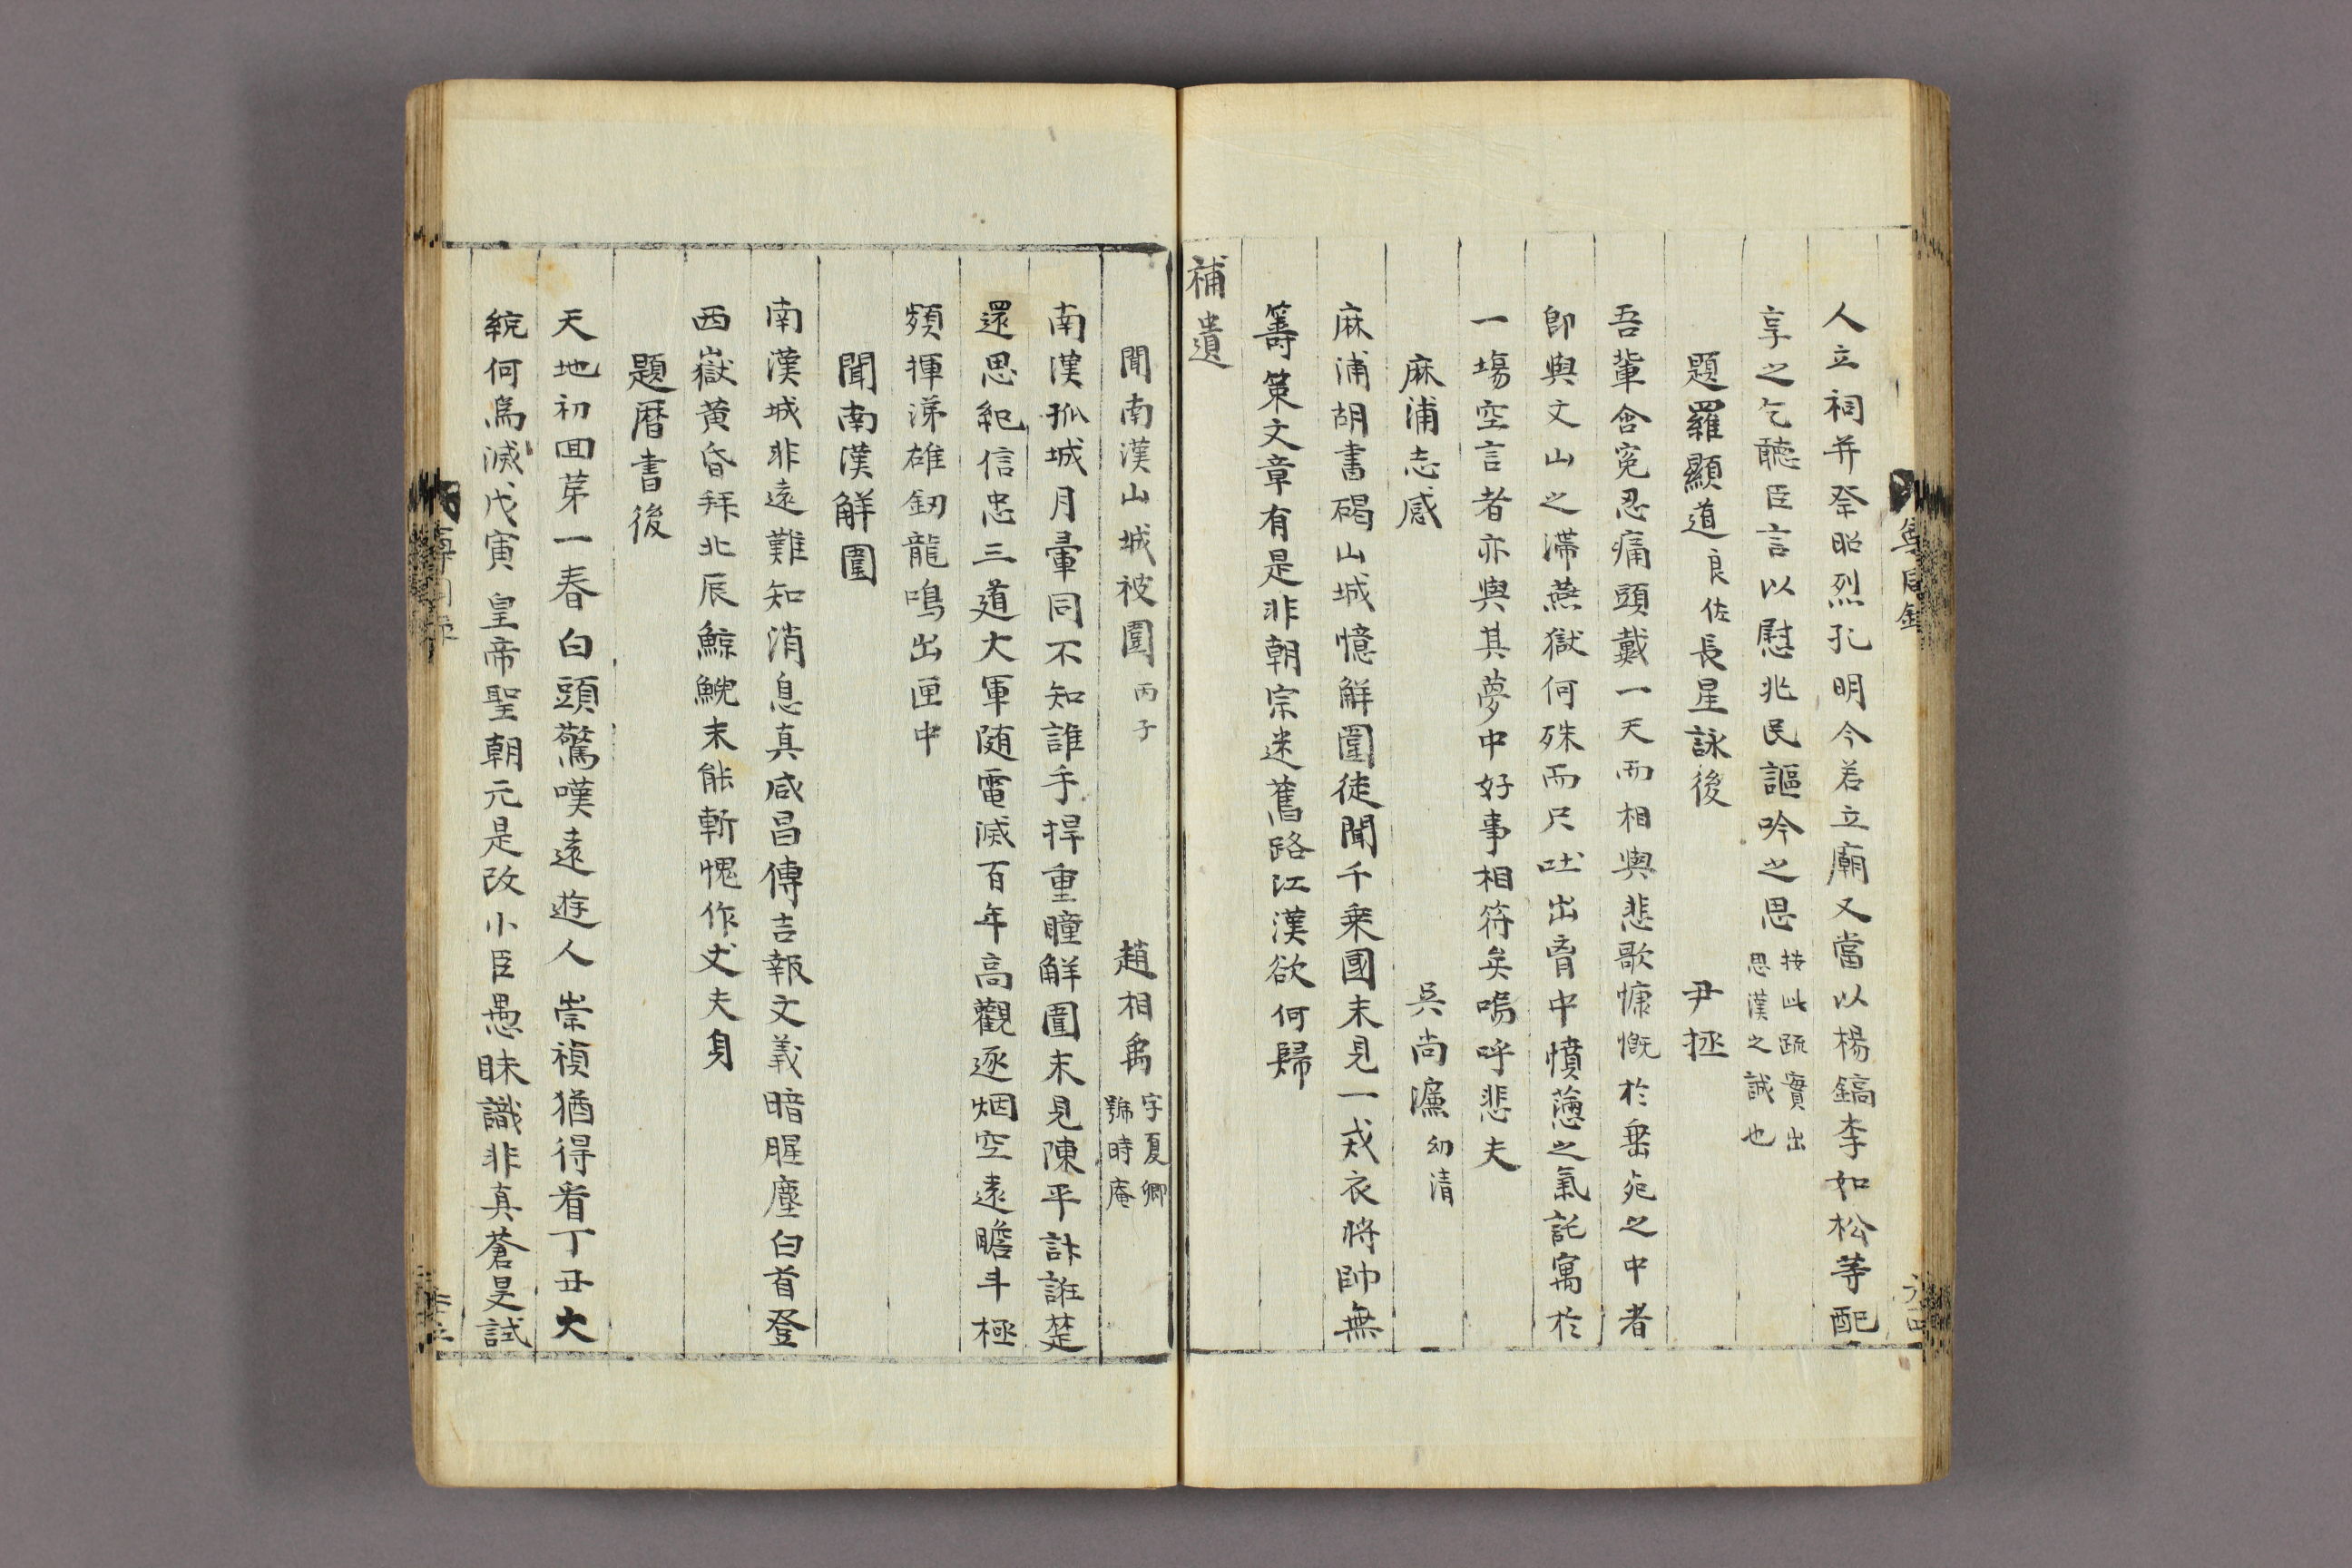 人立祠并祭昭烈孔明今若立廟又當以楊鎬李如松等配
享之乞聽臣言以慰兆民謳吟之思 按此疏實出思漢之誠也
題羅顯道良佐長星詠後 尹拯
吾輩含寃忍痛頭戴一天而相與悲歌慷慨於垂死之中者
即與文山之滯燕獄何殊而只吐出胷中憤懣之氣託寓於
一場空言者亦與其夢中好事相符矣嗚呼悲夫
麻浦志感 吳尚濂 幼清
麻浦胡書碣山城憶觧圍徒聞千乗國未見一戎衣將帥無
籌策文章有是非朝宗迷舊路江漢欲何歸
補遺
聞南漢山城被圍 丙子 趙相禹 字夏卿號時庵
南漢孤城月暈同不知誰手捍重瞳觧圍未見陳平計誑楚
還思紀信忠三道大軍随電滅百年高觀逐烟空遠瞻斗極
頻揮涕雄釰龍鳴出匣中
聞南漢觧圍
南漢城非遠難知消息真咸昌傳吉報文義暗腥塵白首登
西嶽黄昏拜北辰鯨鯢未能斬愧作丈夫身
題曆書後
天地初回苐一春白頭驚嘆遠遊人崇禎猶得看丁丑大
統何爲滅戊寅 皇帝聖朝元是改小臣愚昧識非真蒼旻試